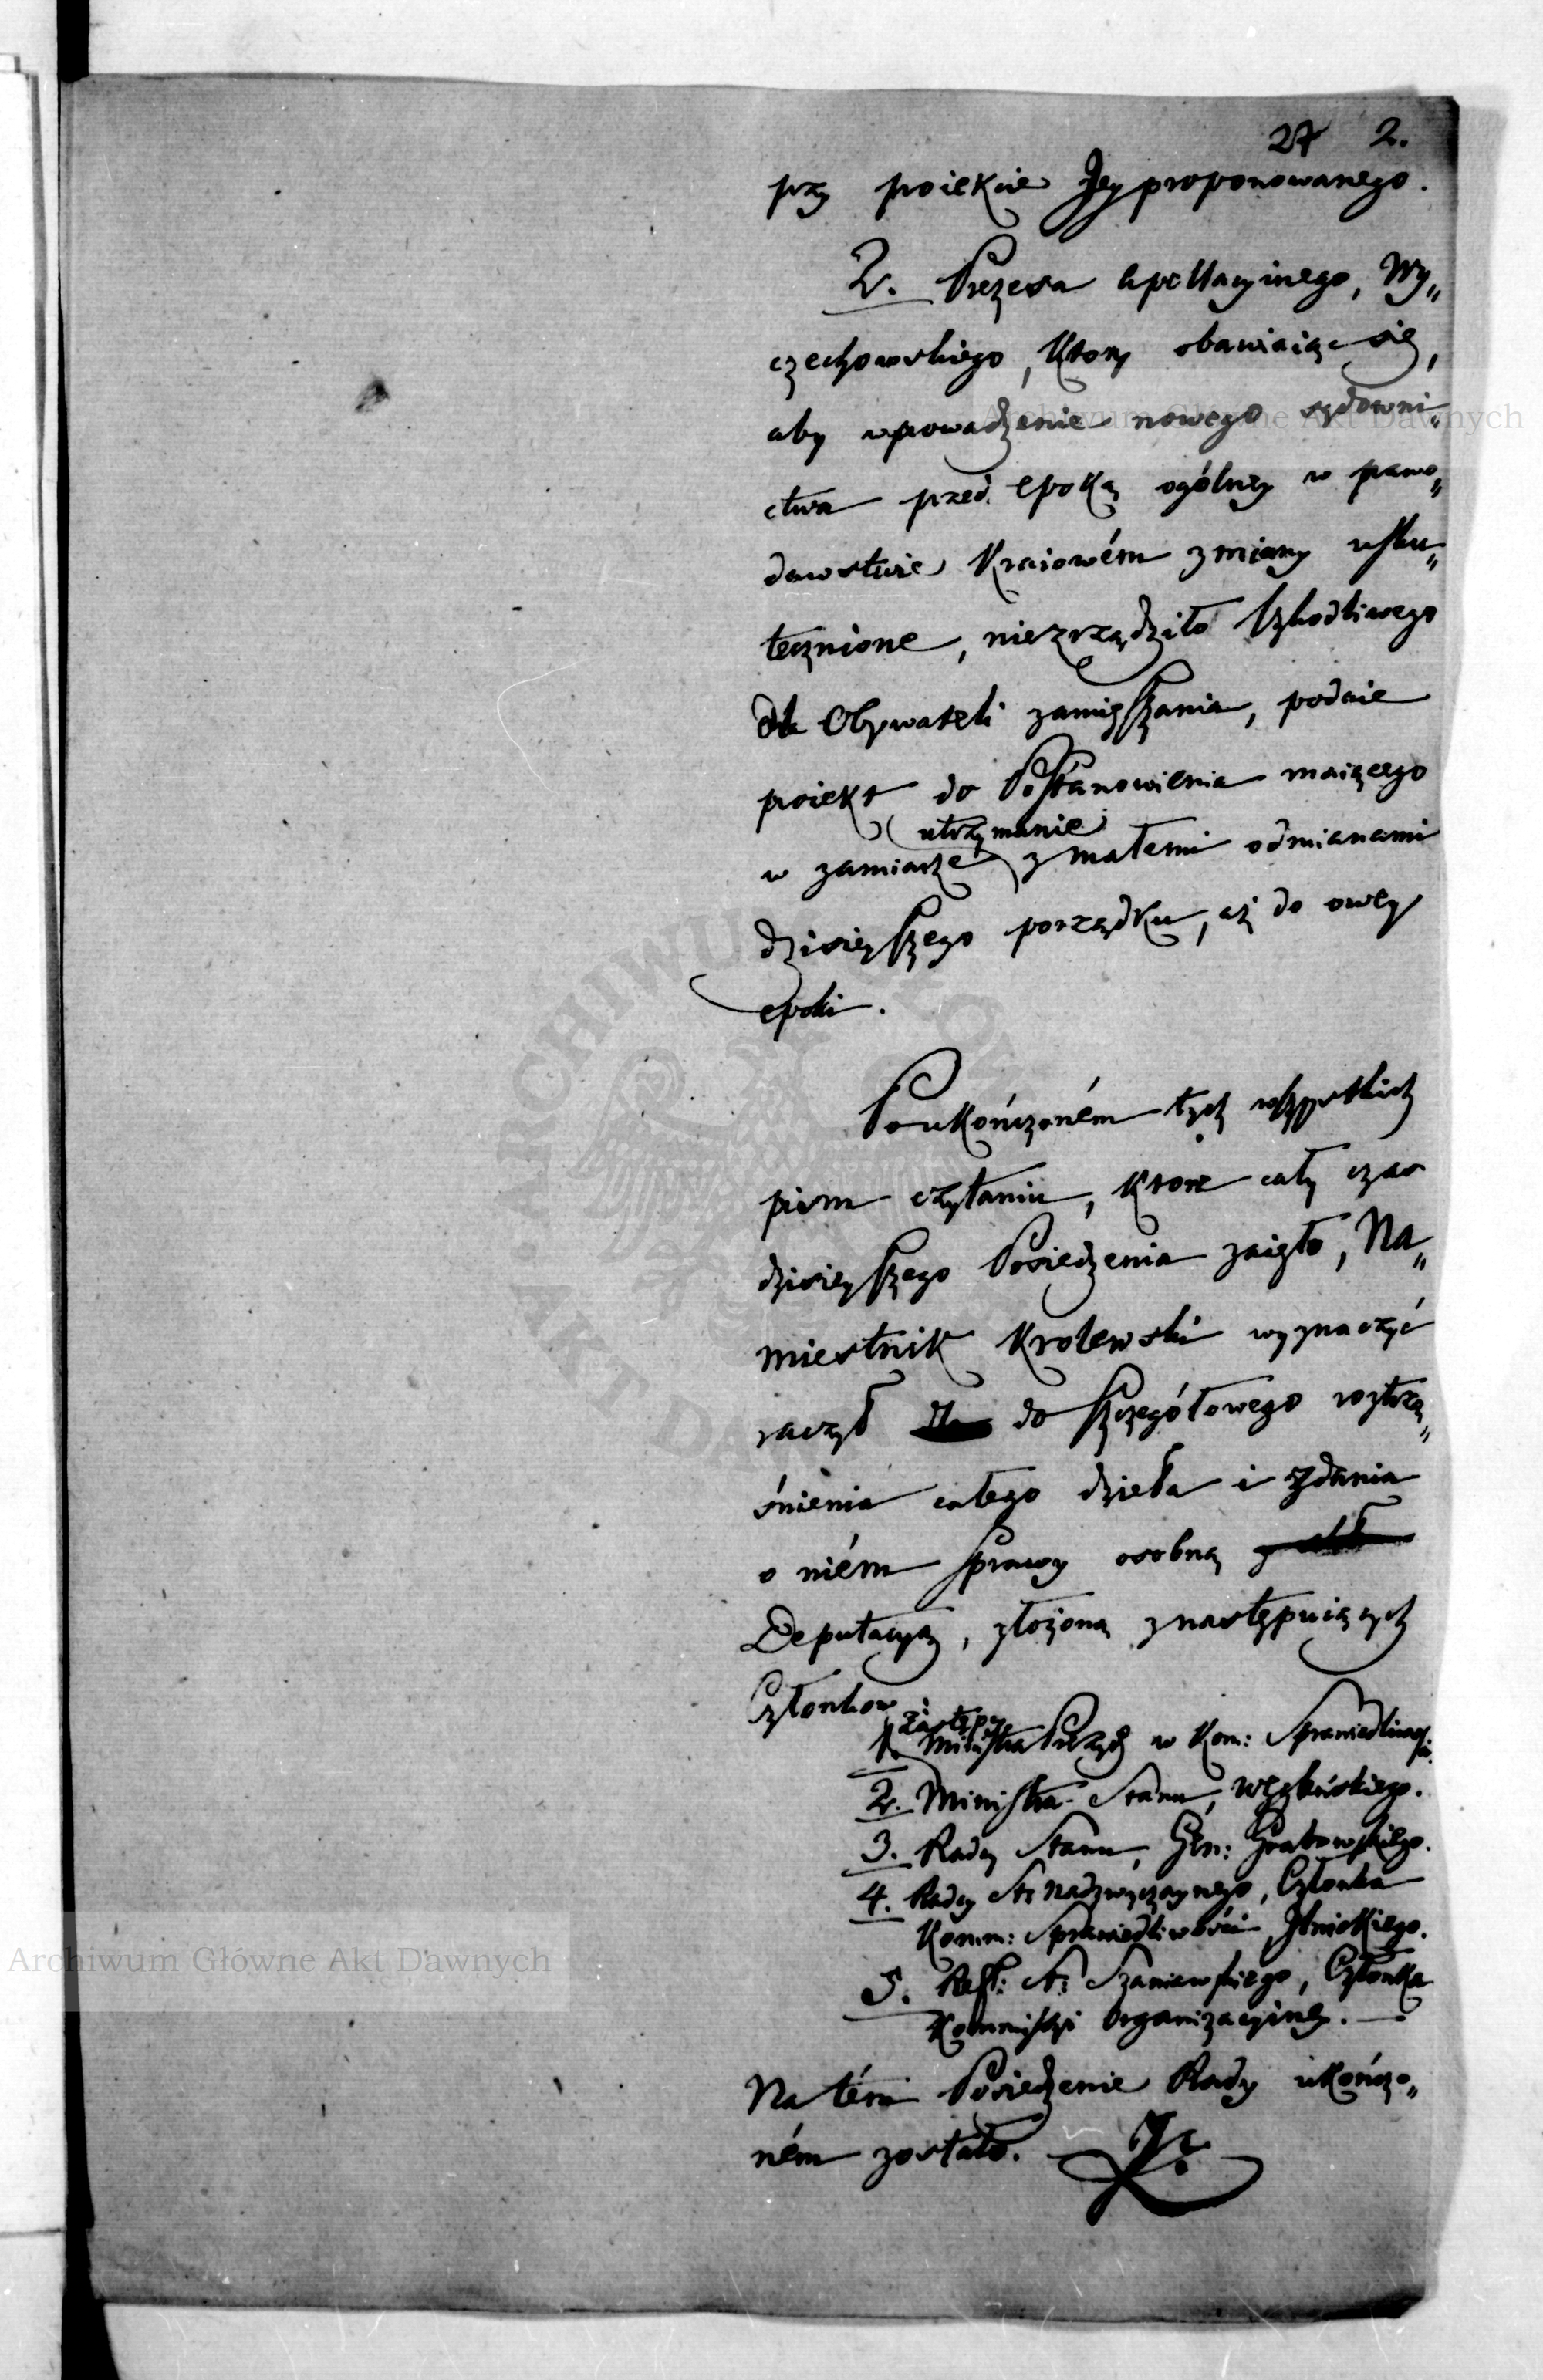 27 2.
przy proiekcie Jey proponowanego.
2. Prezesa Apellacyinego, Wy„
czechowskiego, ktory obawiaiąc się,
aby wprowadzenie nowego sądowni„
ctwa przed epoką ogólney w prawo„
dawstwie Kraiowém zmiany usku„
tecznione, niezrządziło szkodliwego
dla Obywateli zamięszania, podaie
proiekt do Postanowienia maiącego
utrzymanie
w zamiarze z małemi odmianami
dzisieyszego porządku, aż do owey
epoki.
Po ukończoném tych wszystkich
pism czytaniu, ktore cały czas
dzisieyszego Posiedzenia zaięło, Na„
miestnik Krolewski wyznaczyć
raczył do szczegółowego roztrzą„
śnienia całego dzieła i zdania
o niém sprawy osobną
Deputacyą, złożoną z następuiących
Członkow
Zastępcy
1. Ministra Prezyd w Kom: Sprawiedliwości.
2. Ministra Stanu, Węgleńskiego.
3. Radcy Stanu, Gen: Grabowskiego.
4. Radcy St: nadzwyczaynego, Członka
Komm: Sprawiedliwości,
5. Ref: St: Szaniawskiego, Członka
Kommissyi Organizacyiney.
Na tém Posiedzenie Rady ukończo„
ném zostało.